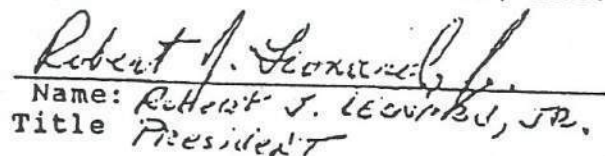 Robert J. Leonard, Jr.
Name: Robert J. Leonard, JR.
Title President